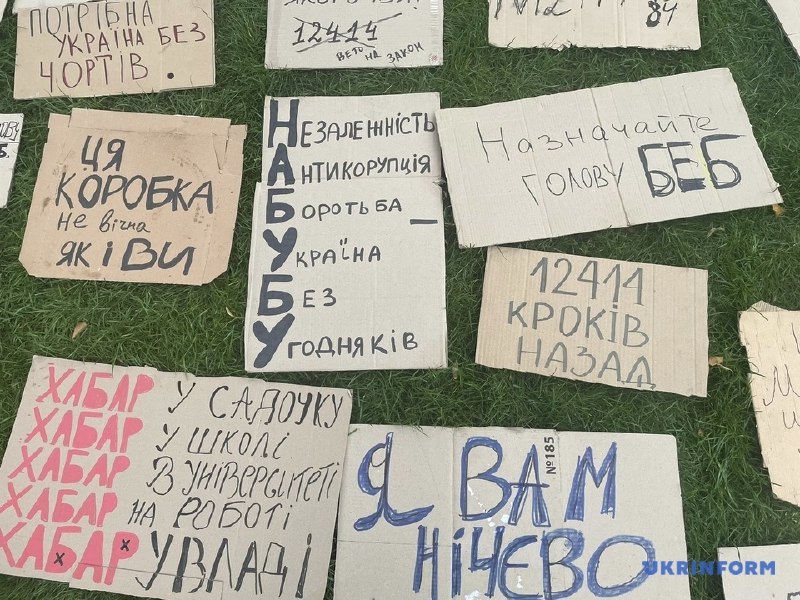 ПОТРІБНА
УКРАЇНА БЕЗ
ЧОРТІВ
12414
ВЕТО НА ЗАКОН
84
ЦЯ
КОРОБКА
не вічна
ЯК І ВИ
НЕЗАЛЕЖНІСТЬ
АНТИКОРУПЦІЯ
БОРОТЬБА_
УКРАЇНА
БЕЗ
УГОДНЯКІВ
Назначайте
ГОЛОВУ БЕБ
12414
КРОКІВ
НАЗАД
ХАБАР У САДОЧКУ
ХАБАР У ШКОЛІ
ХАБАР В УНІВЕРСИТЕТІ
ХАБАР НА РОБОТІ
ХАБАР У ВЛАДІ
Я ВАМ
НІЧЄВО
№185
UKRINFORM